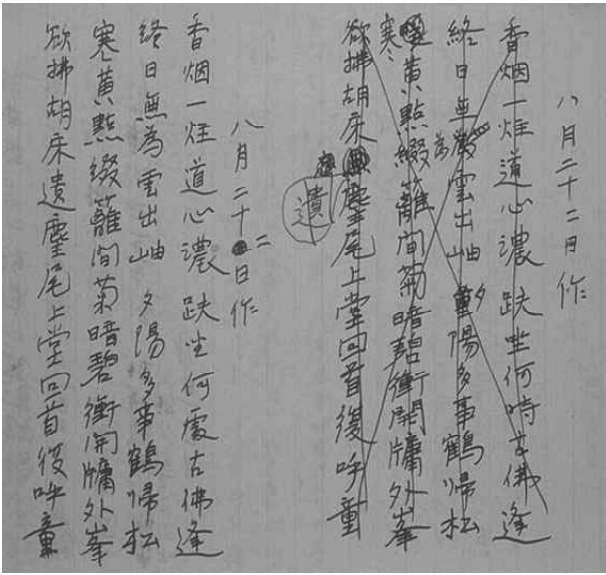 八月二十二日作
香烟一炷道心濃 趺坐何時古佛逢
終日無為雲出岫 夕陽多事鶴歸松
寒黃點綴籬間菊暗碧衝開牗外峯
欲拂胡床塵尾上堂回首復呼童
遺
八月二十二日作
香烟一炷道心濃 趺坐何處古佛逢
終日無為雲出岫 夕陽多事鶴歸松
寒黃點綴籬間菊暗碧衝開牗外峯
欲拂胡床遺麈尾上堂回首復呼童